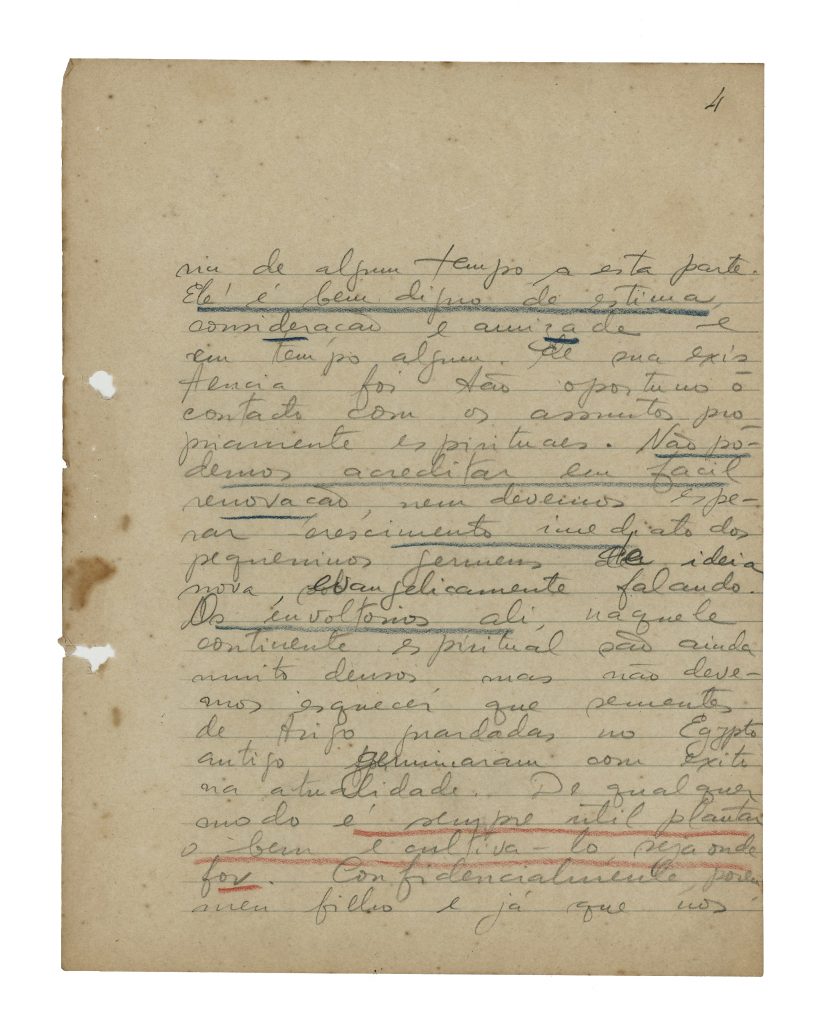 4
ria de algum tempo a esta parte.
Ele é bem digno de estima,
consideração e amizade e
em tempo algum de sua exis
tencia foi tão oportuno o
contacto com os assuntos pro
priamente espirituaes. Não pó-
demos acreditar em facil
renovação, nem devemos espe-
rar crescimento imediato dos
pequeninos germens da ideia
nova evangelicamente falando.
Os envoltorios ali, naquele
continente espiritual são ainda
muito densos mas não deve-
mos esquecer que sementes
de trigo guardadas no Egypto
antigo germinaram com exito
na atualidade. De qualquer
modo é sempre util plantar
o bem e cultiva-lo seja onde
for. Confidencialmente porem
meu filho e já que nos